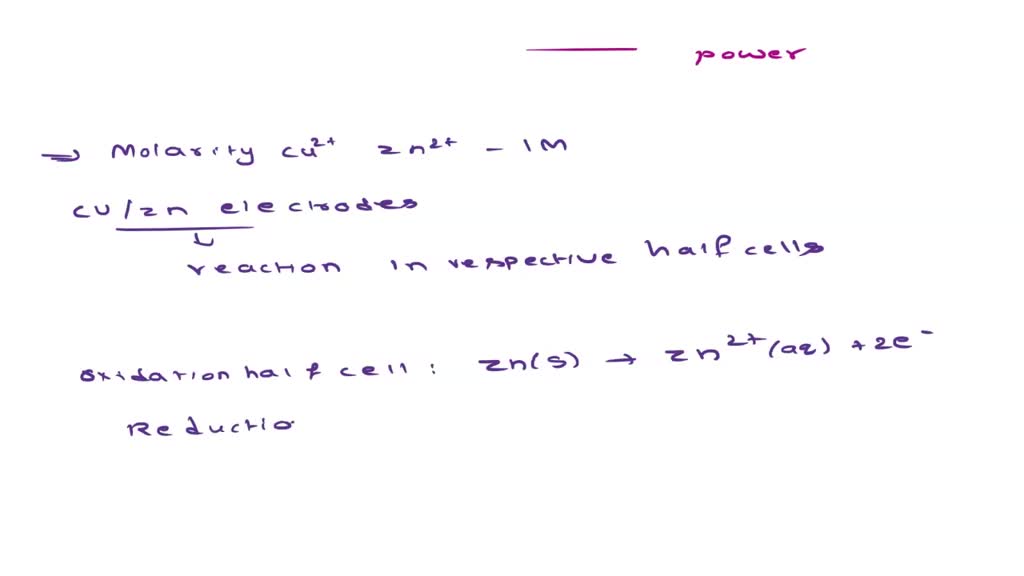 power
→ Molarity Cu²⁺ Zn²⁺ - 1M
Cu/Zn electrodes
reaction in respective half cells
Oxidation half cell : Zn(s) → Zn²⁺(aq) + 2e⁻
Reductio